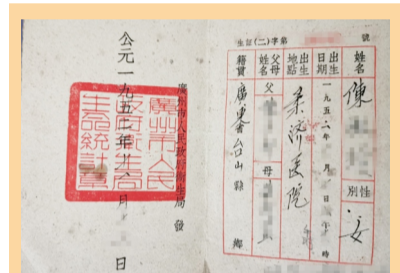 生証(二)字第 號
姓名 陳
別性 女
出生日期 一九五二年 月 日 午 時
出生地點 柔濟医院
父母姓名 父 母
籍貫 廣東省台山縣 鄉
廣州市人民政府衛生局 發
公元一九五二年 月 日
廣州市人民
政府衛生局
生命統計章